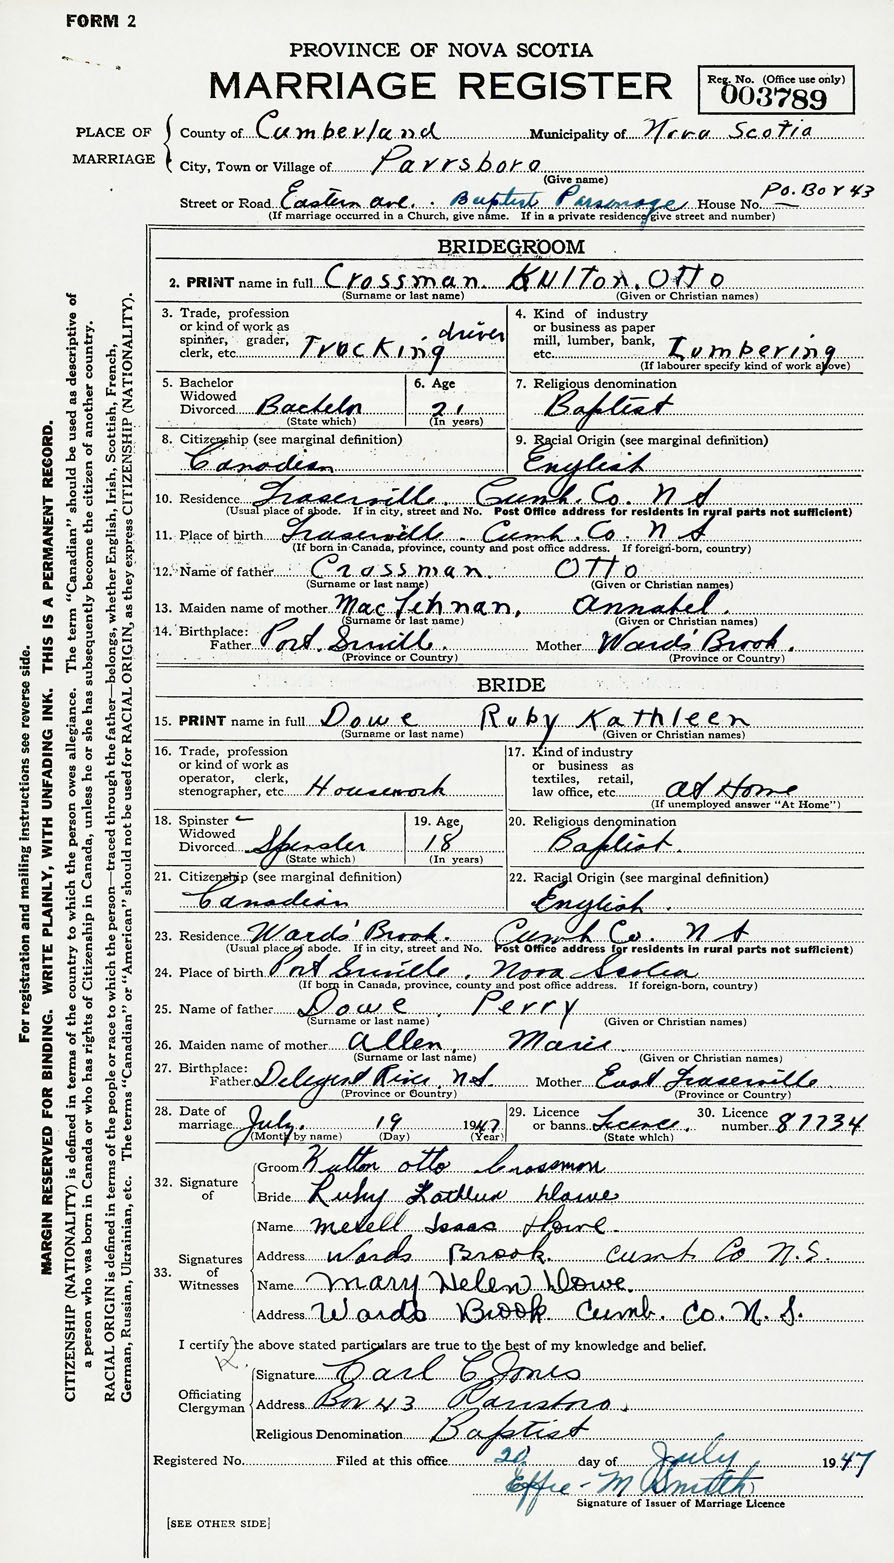 FORM 2
PROVINCE OF NOVA SCOTIA
MARRIAGE REGISTER
Reg. No. (Office use only)
003789
PLACE OF MARRIAGE
County of Cumberland Municipality of Nova Scotia
City, Town or Village of Parrsboro
(Give name)
P.O. Box 43
Street or Road Eastern ave. Baptist Parsonage House No. —
(If marriage occurred in a Church, give name. If in a private residence give street and number)
BRIDEGROOM
2. PRINT name in full Crossman. Kulton. Otto
(Surname or last name) (Given or Christian names)
3. Trade, profession or kind of work as spinner, grader, clerk, etc. Trucking driver
4. Kind of industry or business as paper mill, lumber, bank, etc. Lumbering
(If labourer specify kind of work above)
5. Bachelor Widowed Divorced Bachelor
(State which)
6. Age 21
(In years)
7. Religious denomination
Baptist
8. Citizenship (see marginal definition)
Canadian
9. Racial Origin (see marginal definition)
English
10. Residence Fraserville. Cumb. Co. N S
(Usual place of abode. If in city, street and No. Post Office address for residents in rural parts not sufficient)
11. Place of birth Fraserville. Cumb. Co. N S
(If born in Canada, province, county and post office address. If foreign-born, country)
12. Name of father Crossman. Otto
(Surname or last name) (Given or Christian names)
13. Maiden name of mother Annabel.
(Surname or last name) (Given or Christian names)
14. Birthplace: Father Port Greville. Mother Wards' Brook.
(Province or Country) (Province or Country)
BRIDE
15. PRINT name in full Dowe Ruby Kathleen
(Surname or last name) (Given or Christian names)
16. Trade, profession or kind of work as operator, clerk, stenographer, etc. Housework
17. Kind of industry or business as textiles, retail, law office, etc. At Home
(If unemployed answer "At Home")
18. Spinster Widowed Divorced Spinster
(State which)
19. Age 18
(In years)
20. Religious denomination
Baptist.
21. Citizenship (see marginal definition)
Canadian
22. Racial Origin (see marginal definition)
English.
23. Residence Wards' Brook. Cumb Co. N S
(Usual place of abode. If in city, street and No. Post Office address for residents in rural parts not sufficient)
24. Place of birth Port Greville. Nova Scotia
(If born in Canada, province, county and post office address. If foreign-born, country)
25. Name of father Dowe. Perry
(Surname or last name) (Given or Christian names)
26. Maiden name of mother Allen. Marie
(Surname or last name) (Given or Christian names)
27. Birthplace: Father Deligent River, N.S. Mother East Fraserville
(Province or Country) (Province or Country)
28. Date of marriage July. 19 1947
(Month by name) (Day) (Year)
29. Licence or banns Licence.
(State which)
30. Licence number 87734
32. Signature of
Groom Kulton Otto Crossman
Bride Ruby Kathleen Dowe
33. Signatures of Witnesses
Name Merell Isaac Howe.
Address Wards Brook. Cumb. Co N.S.
Name Mary Helen Dowe.
Address Wards Brook Cumb. Co. N. S.
I certify the above stated particulars are true to the best of my knowledge and belief.
Officiating Clergyman
Signature Carl C Jones
Address Box 43 Parrsboro.
Religious Denomination Baptist
Registered No. Filed at this office 20 day of July 1947
Effie - M Smith
Signature of Issuer of Marriage Licence
[SEE OTHER SIDE]
For registration and mailing instructions see reverse side.
MARGIN RESERVED FOR BINDING. WRITE PLAINLY, WITH UNFADING INK. THIS IS A PERMANENT RECORD.
CITIZENSHIP (NATIONALITY) is defined in terms of the country to which the person owes allegiance. The term "Canadian" should be used as descriptive of
a person who was born in Canada or who has rights of Citizenship in Canada, unless he or she has subsequently become the citizen of another country.
RACIAL ORIGIN is defined in terms of the people or race to which the person—traced through the father—belongs, whether English, Irish, Scottish, French,
German, Russian, Ukrainian, etc. The terms "Canadian" or "American" should not be used for RACIAL ORIGIN, as they express CITIZENSHIP (NATIONALITY).